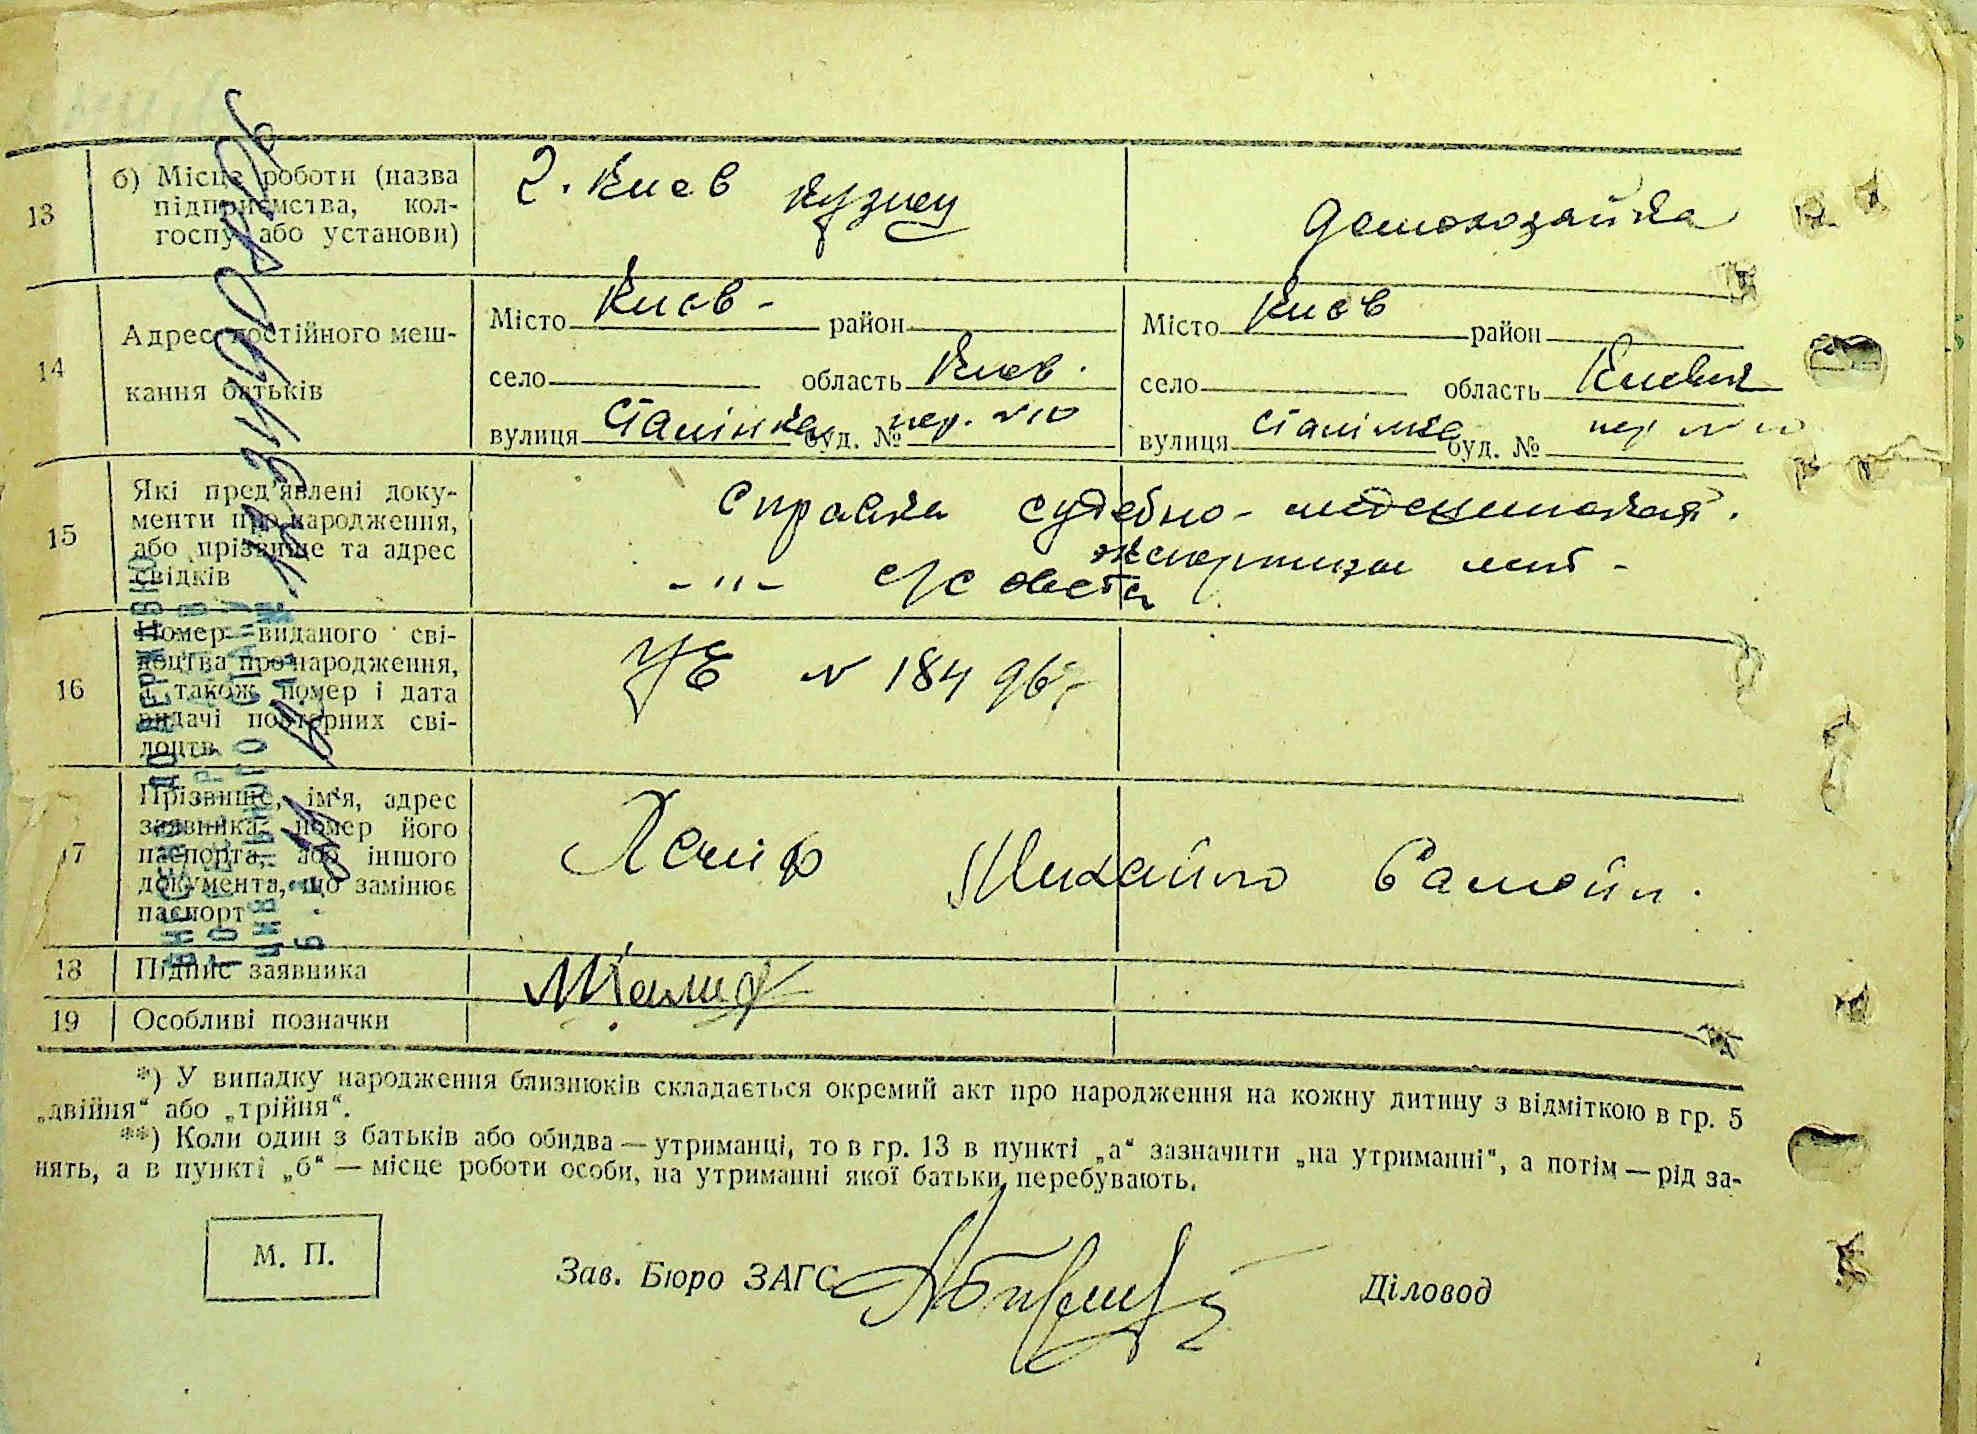 13
б) Місце роботи (назва
підприємства, кол-
госпу або установи)
г. Киев кузнец
домохозяйка
14
Адрес постійного меш-
кання батьків
Місто Киев - район
село область Киев.
вулиця Сталінка буд. № пер. №10
Місто Киев район
село область
вулиця Сталінка буд. № пер
15
Які пред'явлені доку-
менти про народження,
або прізвище та адрес
свідків
Справка судебно-медецинской
экспертизы
- " - с/совета
16
Номер виданого сві-
доцтва про народження,
а також номер і дата
видачі повторних сві-
доцтв
УЕ № 184
17
Прізвище, ім'я, адрес
заявника, номер його
паспорта, або іншого
документа, що замінює
паспорт
Михайло Самойл.
18
Підпис заявника
19
Особливі позначки
*) У випадку народження близнюків складається окремий акт про народження на кожну дитину з відміткою в гр. 5
„двійня“ або „трійня“.
**) Коли один з батьків або обидва — утриманці, то в гр. 13 в пункті „а“ зазначити „на утриманні“, а потім — рід за-
нять, а в пункті „б“ — місце роботи особи, на утриманні якої батьки перебувають.
М. П.
Зав. Бюро ЗАГС
Діловод
ВНЕСЕНО ДО ДЕРЖАВНОГО
РЕЄСТРУ
ЦИВІЛЬНОГО СТАНУ